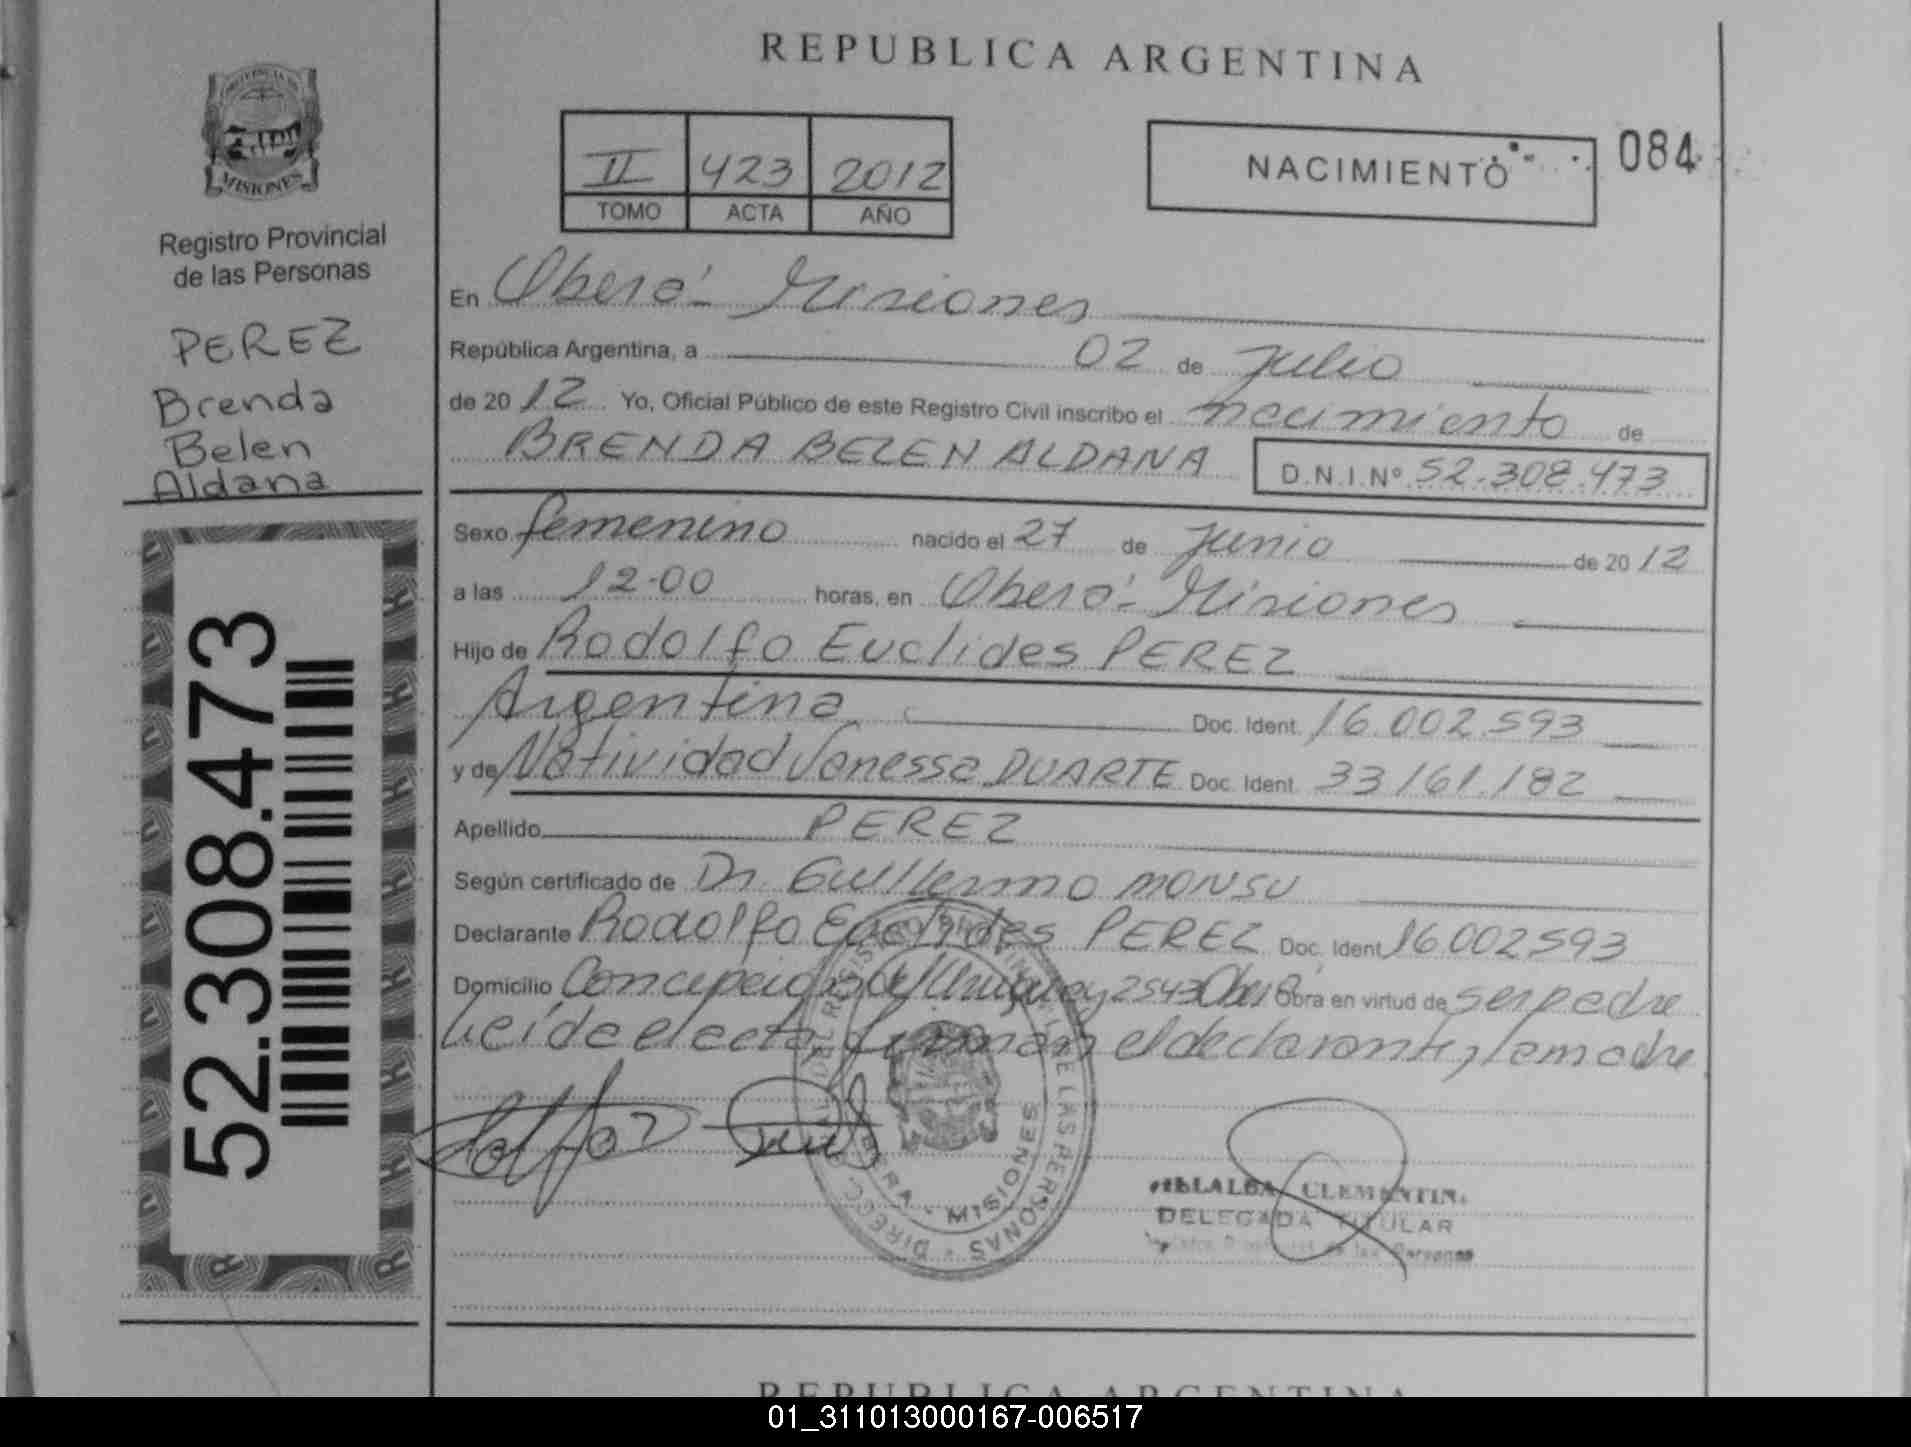 REPUBLICA ARGENTINA
PROVINCIA DE
MISIONES
Registro Provincial
de las Personas
PEREZ
Brenda
Belen
Aldana
52.308.473
II 423 2012
TOMO ACTA AÑO
NACIMIENTO
084
En Oberá - Misiones
República Argentina, a 02 de Julio
de 2012 Yo, Oficial Público de este Registro Civil inscribo el nacimiento de
BRENDA BELEN ALDANA D.N.I.Nº 52.308.473
Sexo femenino nacido el 27 de Junio de 2012
a las 12.00 horas, en Oberá - Misiones
Hijo de Rodolfo Euclides PEREZ
Argentina Doc. Ident. 16.002.593
y de Natividad Vanessa DUARTE Doc. Ident. 33161.182
Apellido PEREZ
Según certificado de Dr. Guillermo MONSU
Declarante Rodolfo Euclides PEREZ Doc. Ident 16.002593
Domicilio Concepción del Uruguay 2543 Oberá Obra en virtud de ser padre
Leída el acta firman el declarante y la madre
DIRECC. GRAL. DEL REGISTRO PROVINCIAL DE LAS PERSONAS
OBERA - MISIONES
VILLALBA CLEMENTIN.
DELEGADA TITULAR
Registro Provincial de las Personas
REPUBLICA ARGENTINA
01_311013000167-006517